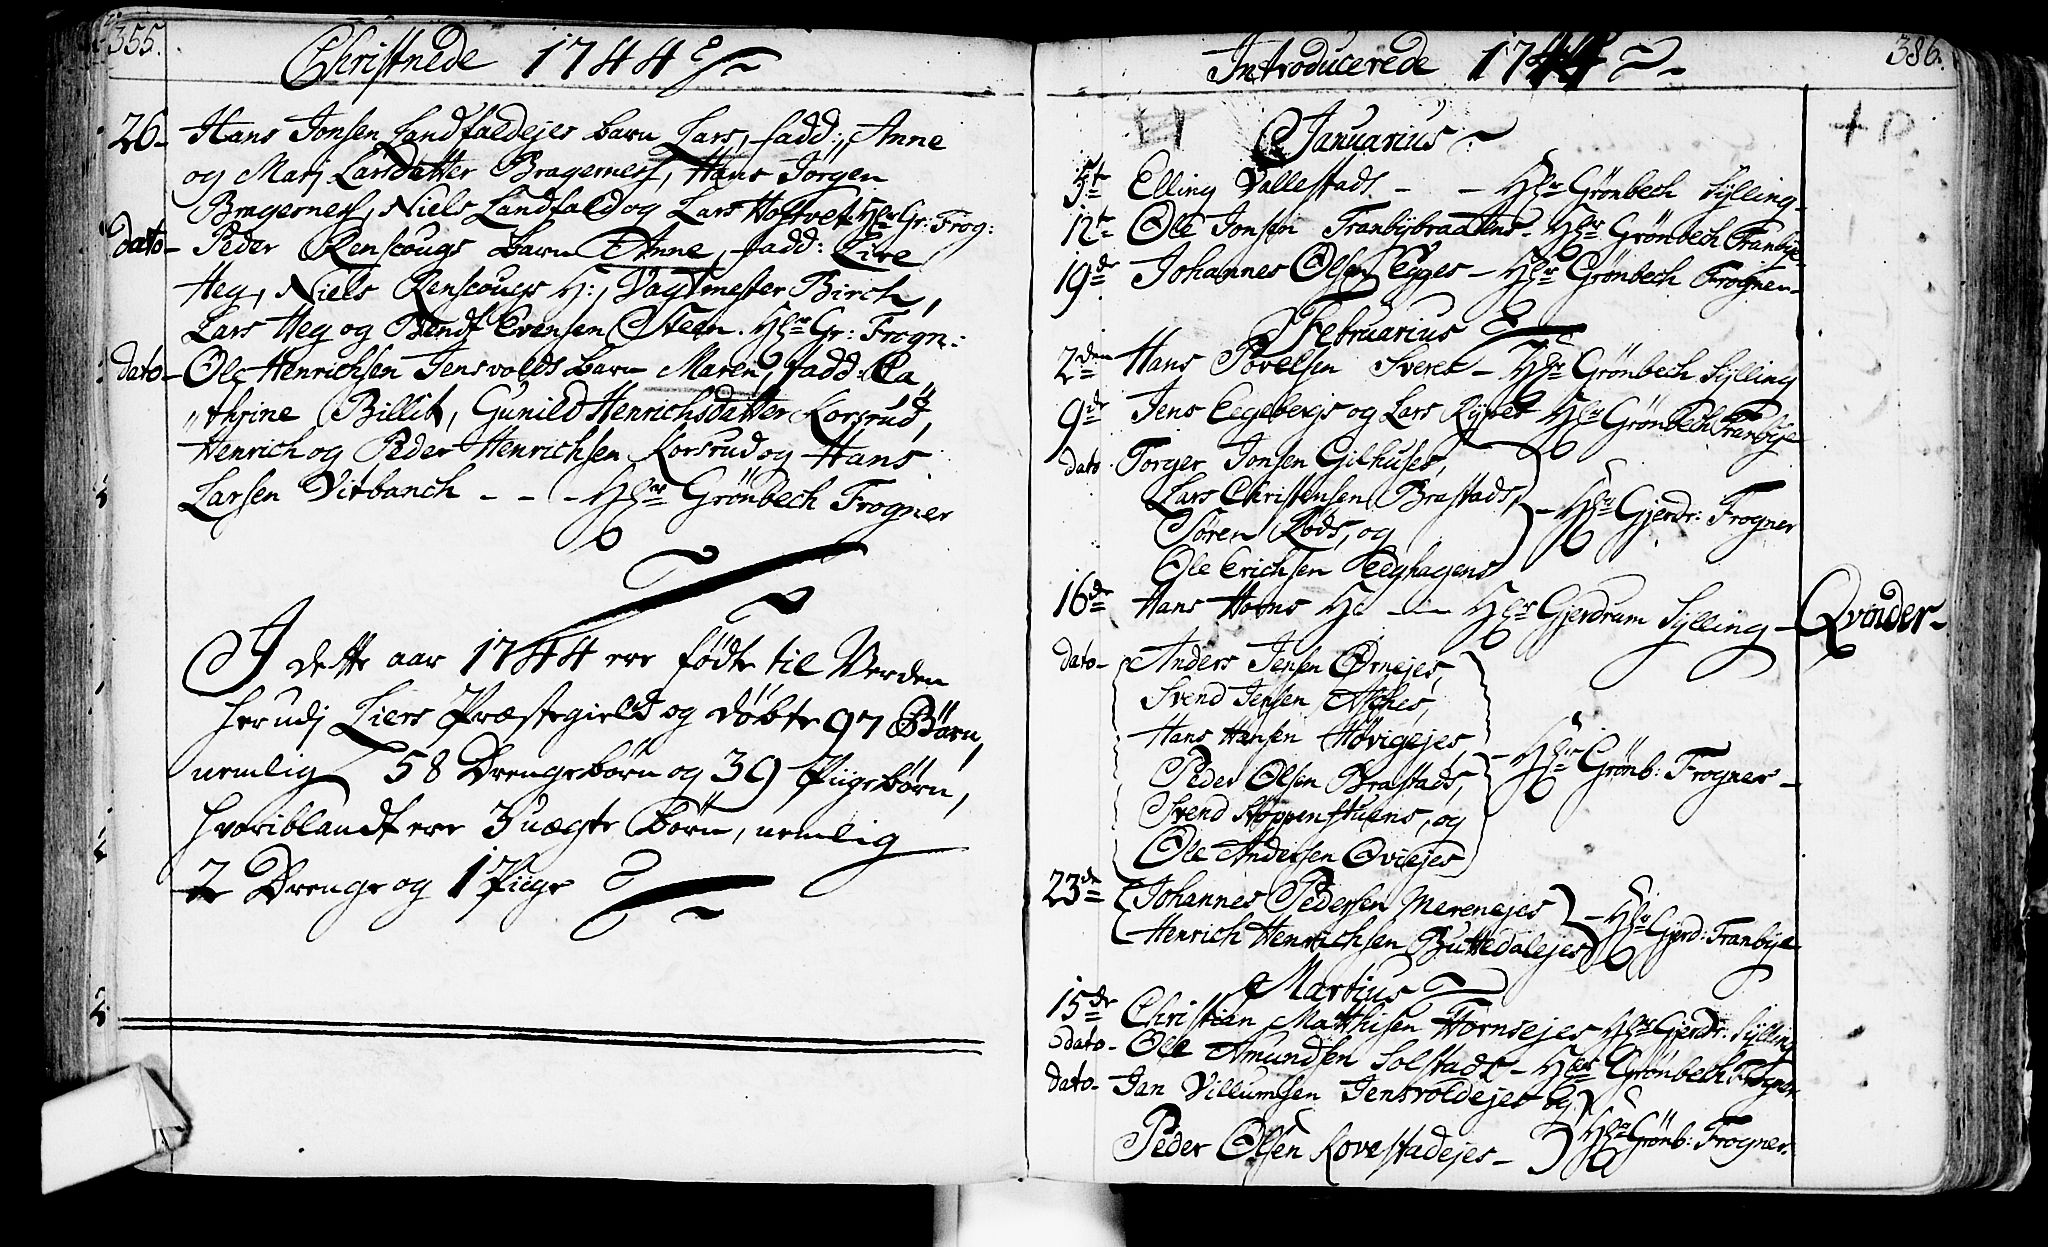 355.
Christnede 1744
26- Hans Jonsen Landfaldejes barn Lars, fadd: Anne
og Marj Larsdatter Bragerness, Hans Jörgen
Bragerness, Niels Landfald og Lars Hotvet. Hr Gr: Frog:
dato- Peder Renscougs barn Anne, fadd: Live
Heg, Niels Renscougs H:, Vagtmester Birch,
Lars Heg og Bendt Evensen Steen. Hr Gr: Frogn:
dato- Ole Henrichsen Jensvolds barn Maren, fadd: Ca
"thrine Billit, Gunild Henrichsdatter Korsrud,
Henrich og Peder Henrichsen Korsrud og Hans
Larsen Vitbanch - - - Hr Grönbech Frogner
I dette aar 1744 ere fødte til Verden
herudj Liers Præstegield og döbte 97 Börn,
nemlig 58 Drengebörn og 39 Piigebörn,
hvoriblandt ere 3 uægte Börn, nemlig
2 Drenge og 1 Piige
386.
Introducerede 1744
Januarius
5te Elling Vallestads. - - Hr Grönbech Sylling-
12te Ole Jonsen Tranbybraatens - Hr Grönbech Tranbye-
19de Johannes Olsen Egges - Hr Grönbech Frogner-
Februarius
2den Hans Povelsen Sveres - Hr Grönbech Sylling
9de Jens Eegebergs og Lars Kyves Hr Grönbech Tranbye
dato Torger Jonsen Gilhuses,
Lars Christensen Brastads,
Sören Röds, og - Hr Gjerdr: Frogner
Ole Erichsen Pedghagens
16de Hans Horns He - Hr Gjerdrum Sylling - Qvinder-
dato- Anders Jensen Ørnejes,
Svend Jensen Aschies,
Hans Hansen Høvigejes,
Peder Olsen Brastads, - Hr Grönb: Frogner-
Svend Stoppenstuens, og
Ole Andersen Oviejes
23de Johannes Pedersen Merenejes
Henrich Henrichsen Buttedalejes - Hr Gjerd: Tranbye
Martius
15de Christian Matthisen Hörnsejes Hr Gjerdr: Sylling
dato- Ole Amundsen Solstads - Hr Grönbech Frogner
dato- Jan Villumsen Jensvoldejes og
Peder Olsen Kovestadejes - Hr Grönb: Frogner.